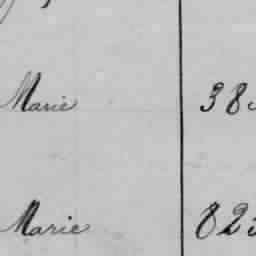 Marie 38
Marie 82